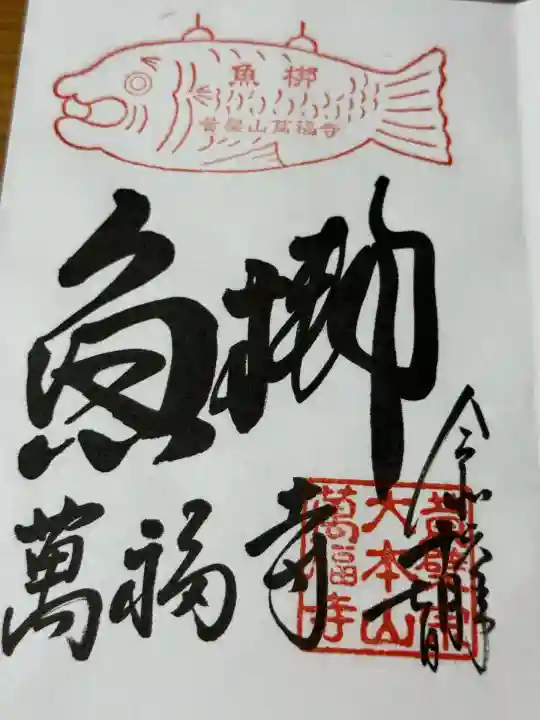 魚梆
黄檗山萬福寺
魚梆
萬福寺
黄檗宗
大本山
萬福寺
令和